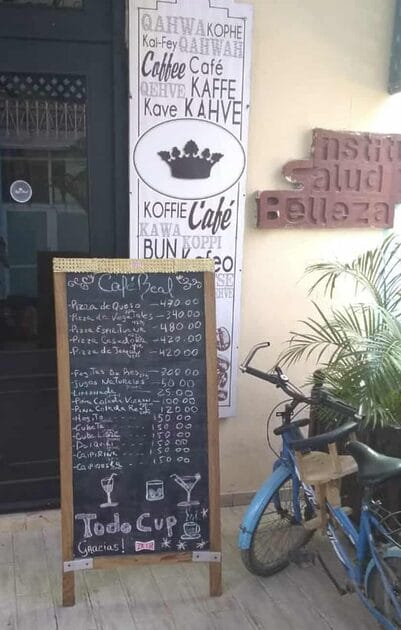 QAHWA KOPHE
Kai-Fey QAHWAH
Coffee Café
QEHVE KAFFE
Kave KAHVE
KOFFIE Café
KAWA KOPPI
BUN Kafeo
Institu
Salud
Belleza
Café Real
Pizza de Queso 470.00
Pizza de Vegetales 340.00
480.00
420.00
Pizza de 420.00
300.00
Jugos Naturales 50.00
Limonada 25.00
Piña Colada 100.00
Piña Colada 120.00
Mojito 150.00
Cubata 150.00
Cuba Libre 150.00
Daiquiri 150.00
Caipiriña 150.00
150.00
Todo Cup
Gracias!